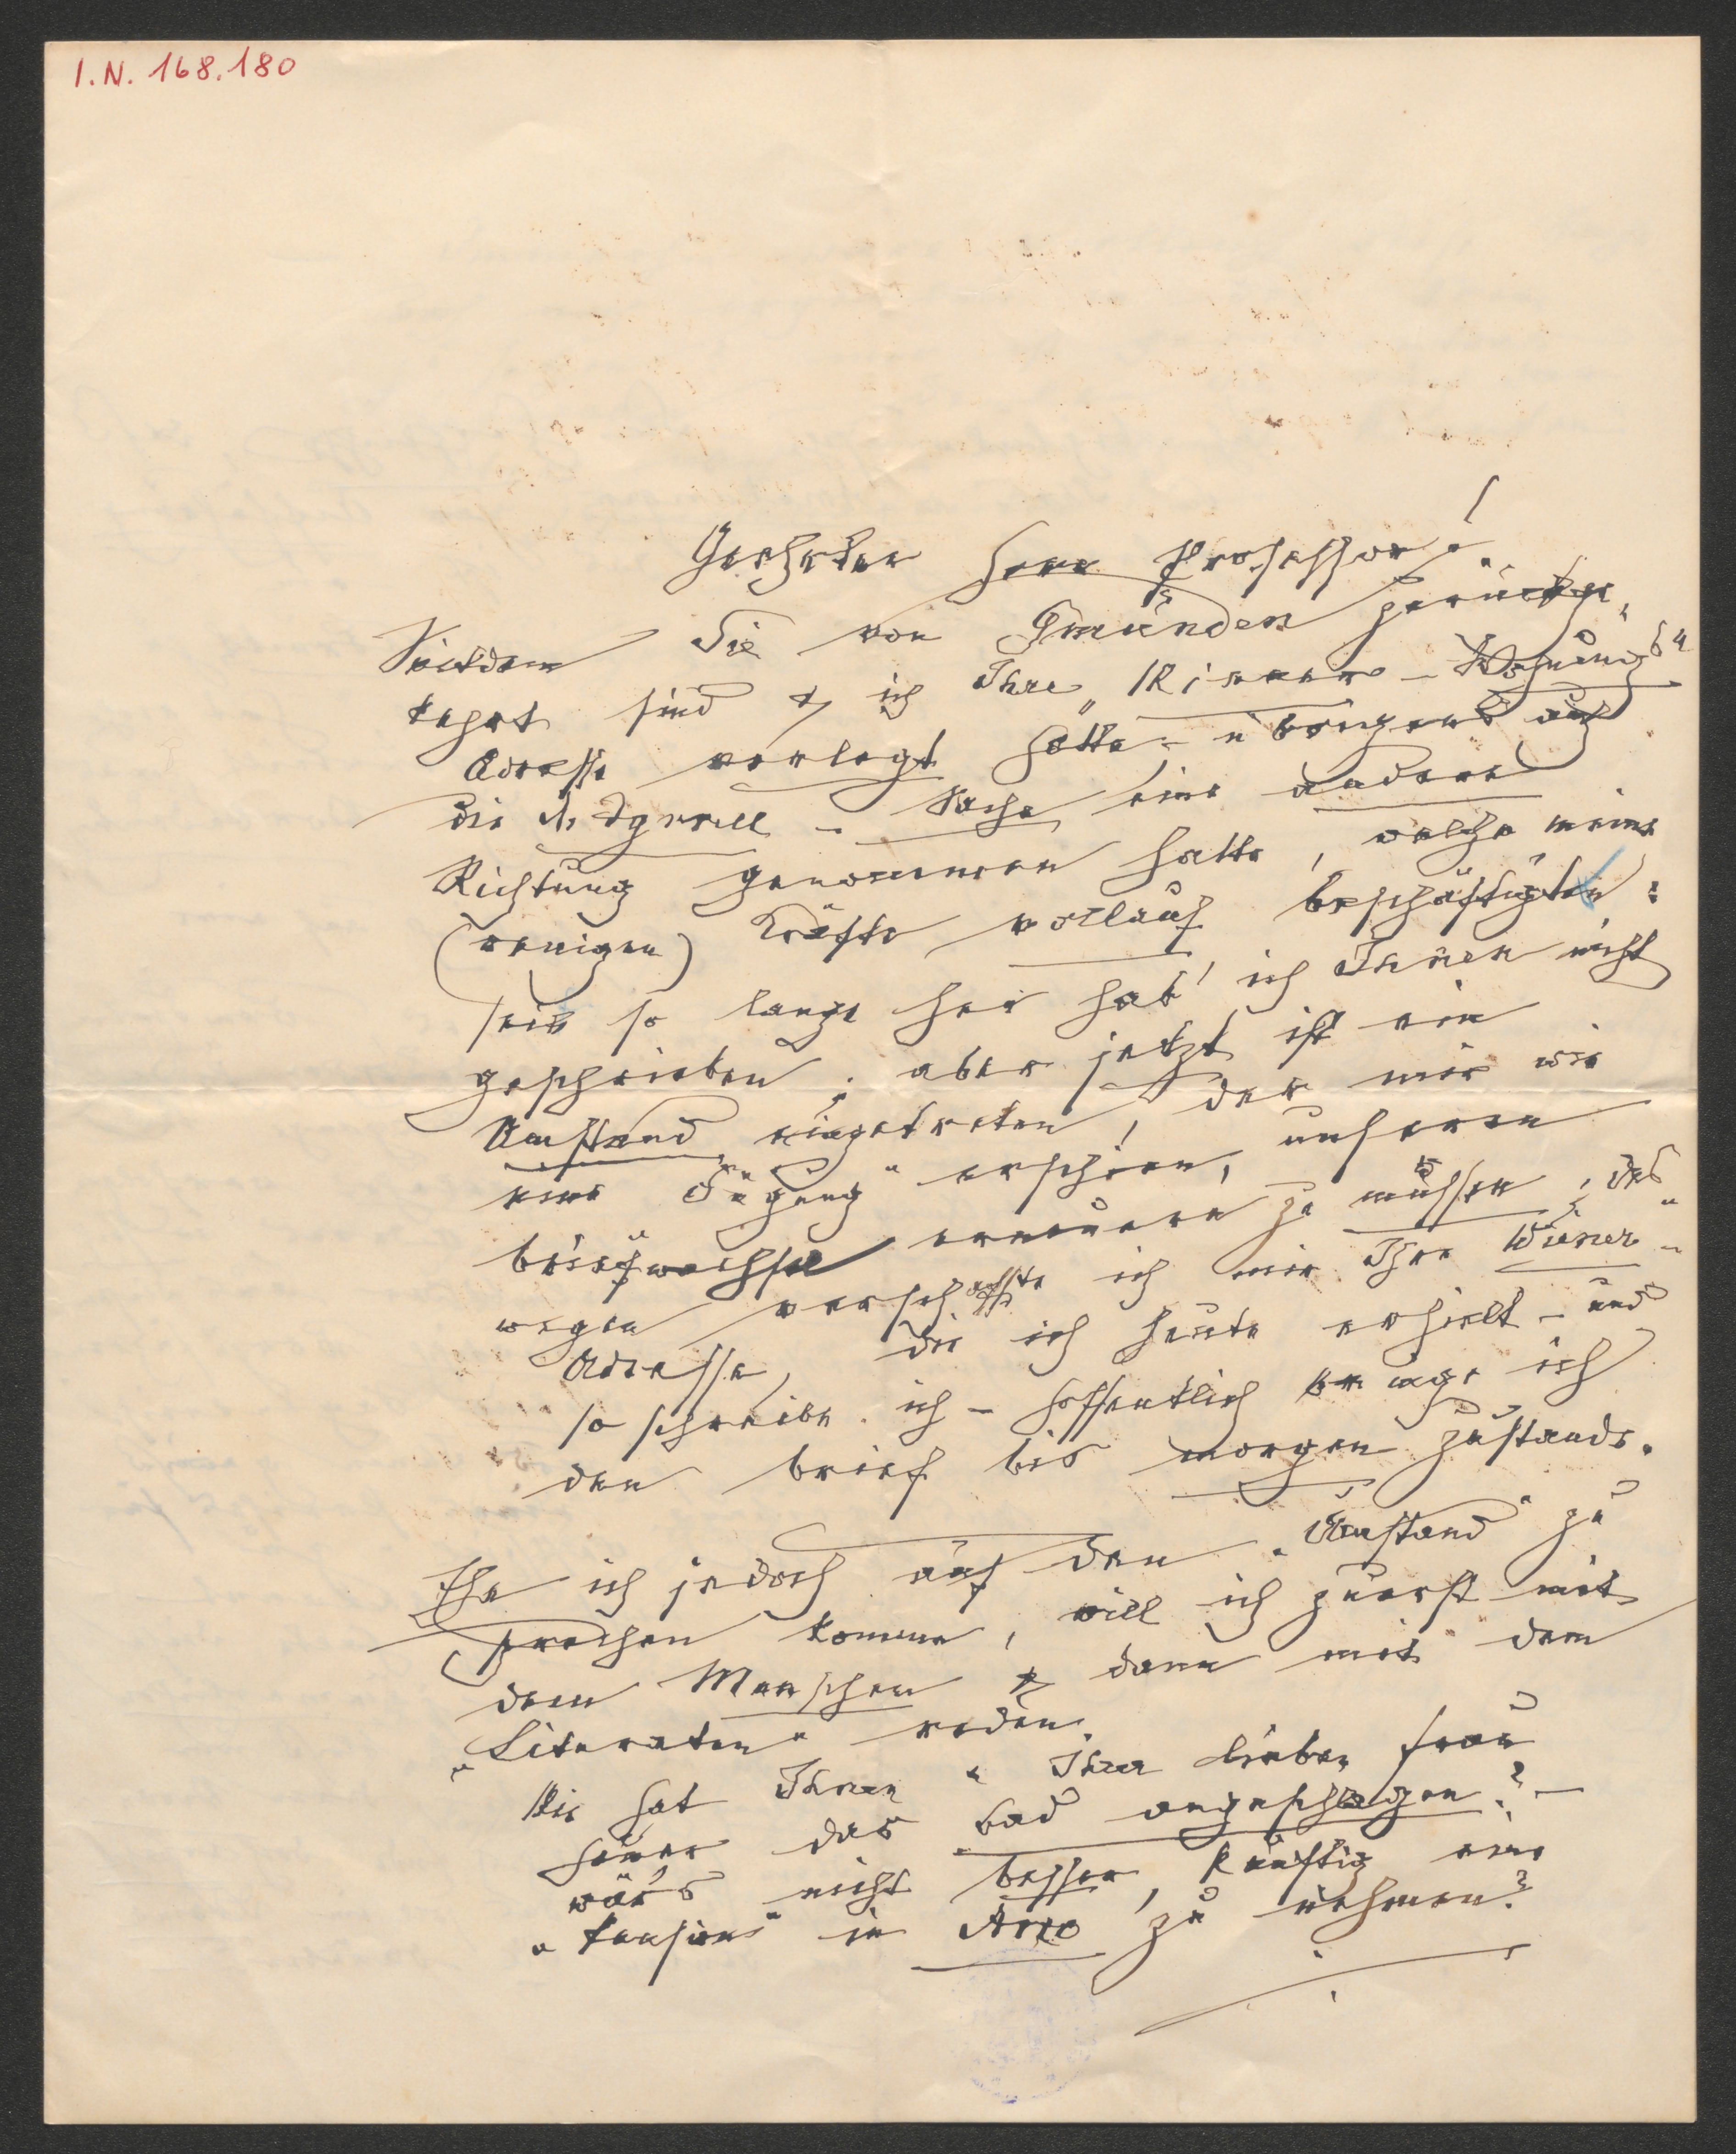 I.N. 168.180
Geehrter Herr Professor!
Seitdem Sie von Gmunden zurückge,
kehrt sind & ich Ihre „Wiener-Wohnungs"
Adresse verlegt hatte – übrigens auch
die - Sache eine andere
Richtung genommen hatte, welche meine
(wenigen) Kräfte vollauf beschäftigten:
seit so lange her hab' ich Ihnen nicht
geschrieben; aber jetzt ist ein
Umstand eingetreten, der mir wie
eine „Fügung" erschien, unseren
Briefwechsel erneuern zu müssen; des-
wegen verschaffte ich mir Ihre Wiener-
Adresse, die ich heute erhielt – und
so schreibe ich – hoffentlich bringe ich
den Brief bis morgen zustande.
Ehe ich jedoch auf den „Umstand" zu
sprechen komme, will ich zuerst mit
dem Menschen & dann mit dem
„Literaten" reden.
Wie hat Ihnen & Ihrer lieben Frau
heuer das Bad angeschlagen? –
wär's nicht besser, künftig eine
„Pension" in zu nehmen?